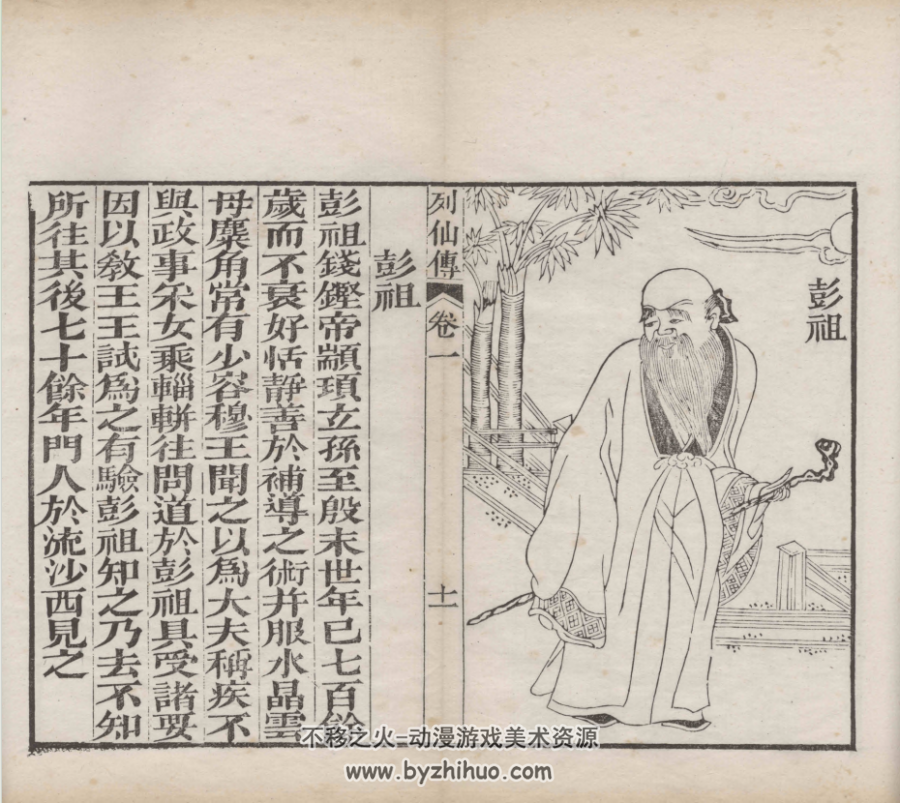 彭祖
列仙傳
卷一
十一
彭祖
彭祖錢鏗帝顓頊立孫至殷末世年已七百餘
歲而不衰好恬靜善於補導之術并服水晶雲
母麋角常有少容穆王聞之以爲大夫稱疾不
與政事采女乘輜軿往問道於彭祖具受諸要
因以教王王試爲之有驗彭祖知之乃去不知
所往其後七十餘年門人於流沙西見之
不移之火-动漫游戏美术资源
www.byzhihuo.com